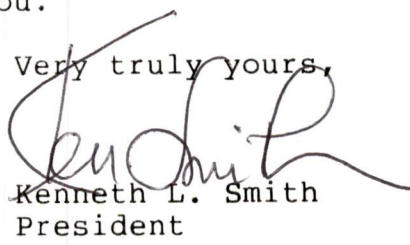 ou.
Very truly yours,
Ken Smith
Kenneth L. Smith
President